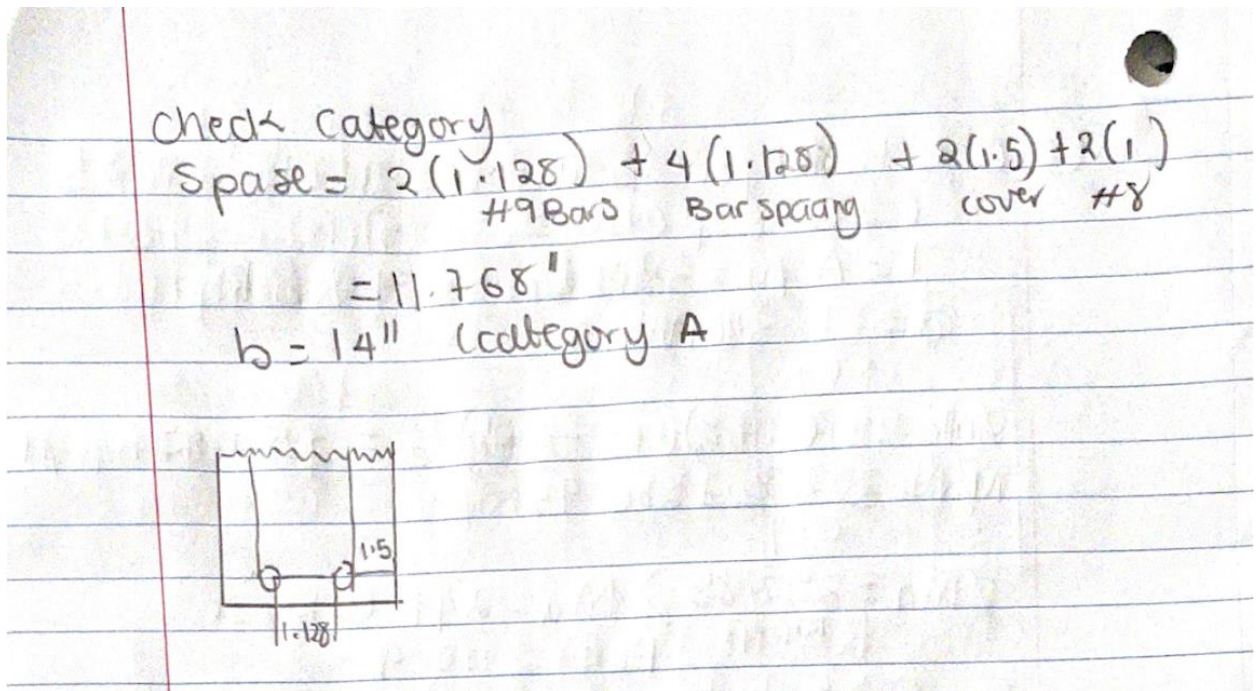 Check Category
Spase = 2 (1.128) + 4 (1.128) + 2(1.5) + 2(1)
#9 Bars Bar spacing cover #8
= 11.768"
b = 14" (category A
1.5
1.128